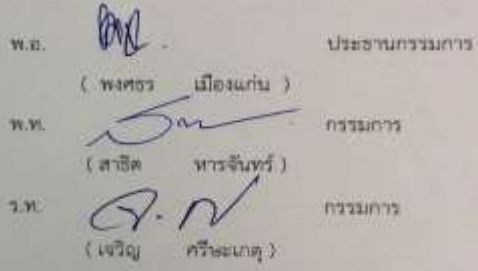 พ.อ. ประธานกรรมการ
( พงศธร เมืองแก่น )
พ.ท. กรรมการ
( สาธิต หารจันทร์ )
ร.ท. จ. กรรมการ
( เจริญ ศรีษะเกตุ )